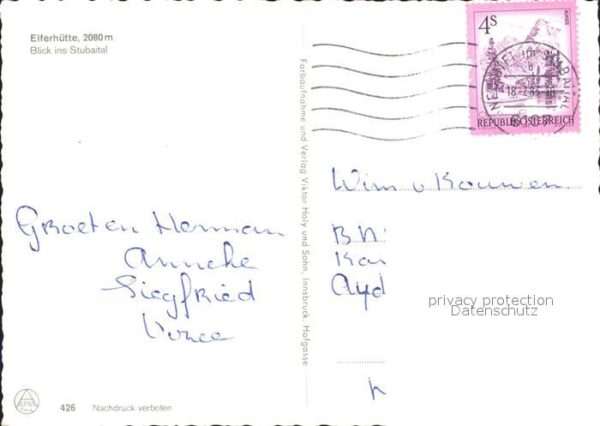 Elferhütte, 2080 m
Blick ins Stubaital
4S
REPUBLIK ÖSTERREICH
NEUSTIFT IM STUBAITAL
Farbaufnahme und Verlag Viktor Holy und Sohn, Innsbruck, Hofgasse
Wim v Kouwen
Groeten Herman
Anneke
Siegfried
privacy protection
Datenschutz
426 Nachdruck verboten